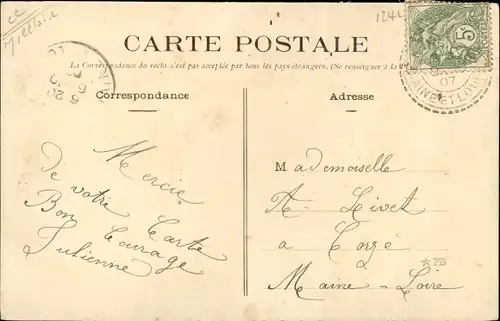 1241
CARTE POSTALE
La Correspondance du recto n'est pas acceptée par tous les pays étrangers. (Se renseigner à la
Correspondance
Adresse
Mercie
de votre Carte
Bon Courage
Julienne
Mademoiselle
A Livet
a Corzé
Maine - Loire
5
07
MAINE ET LOIRE
PB